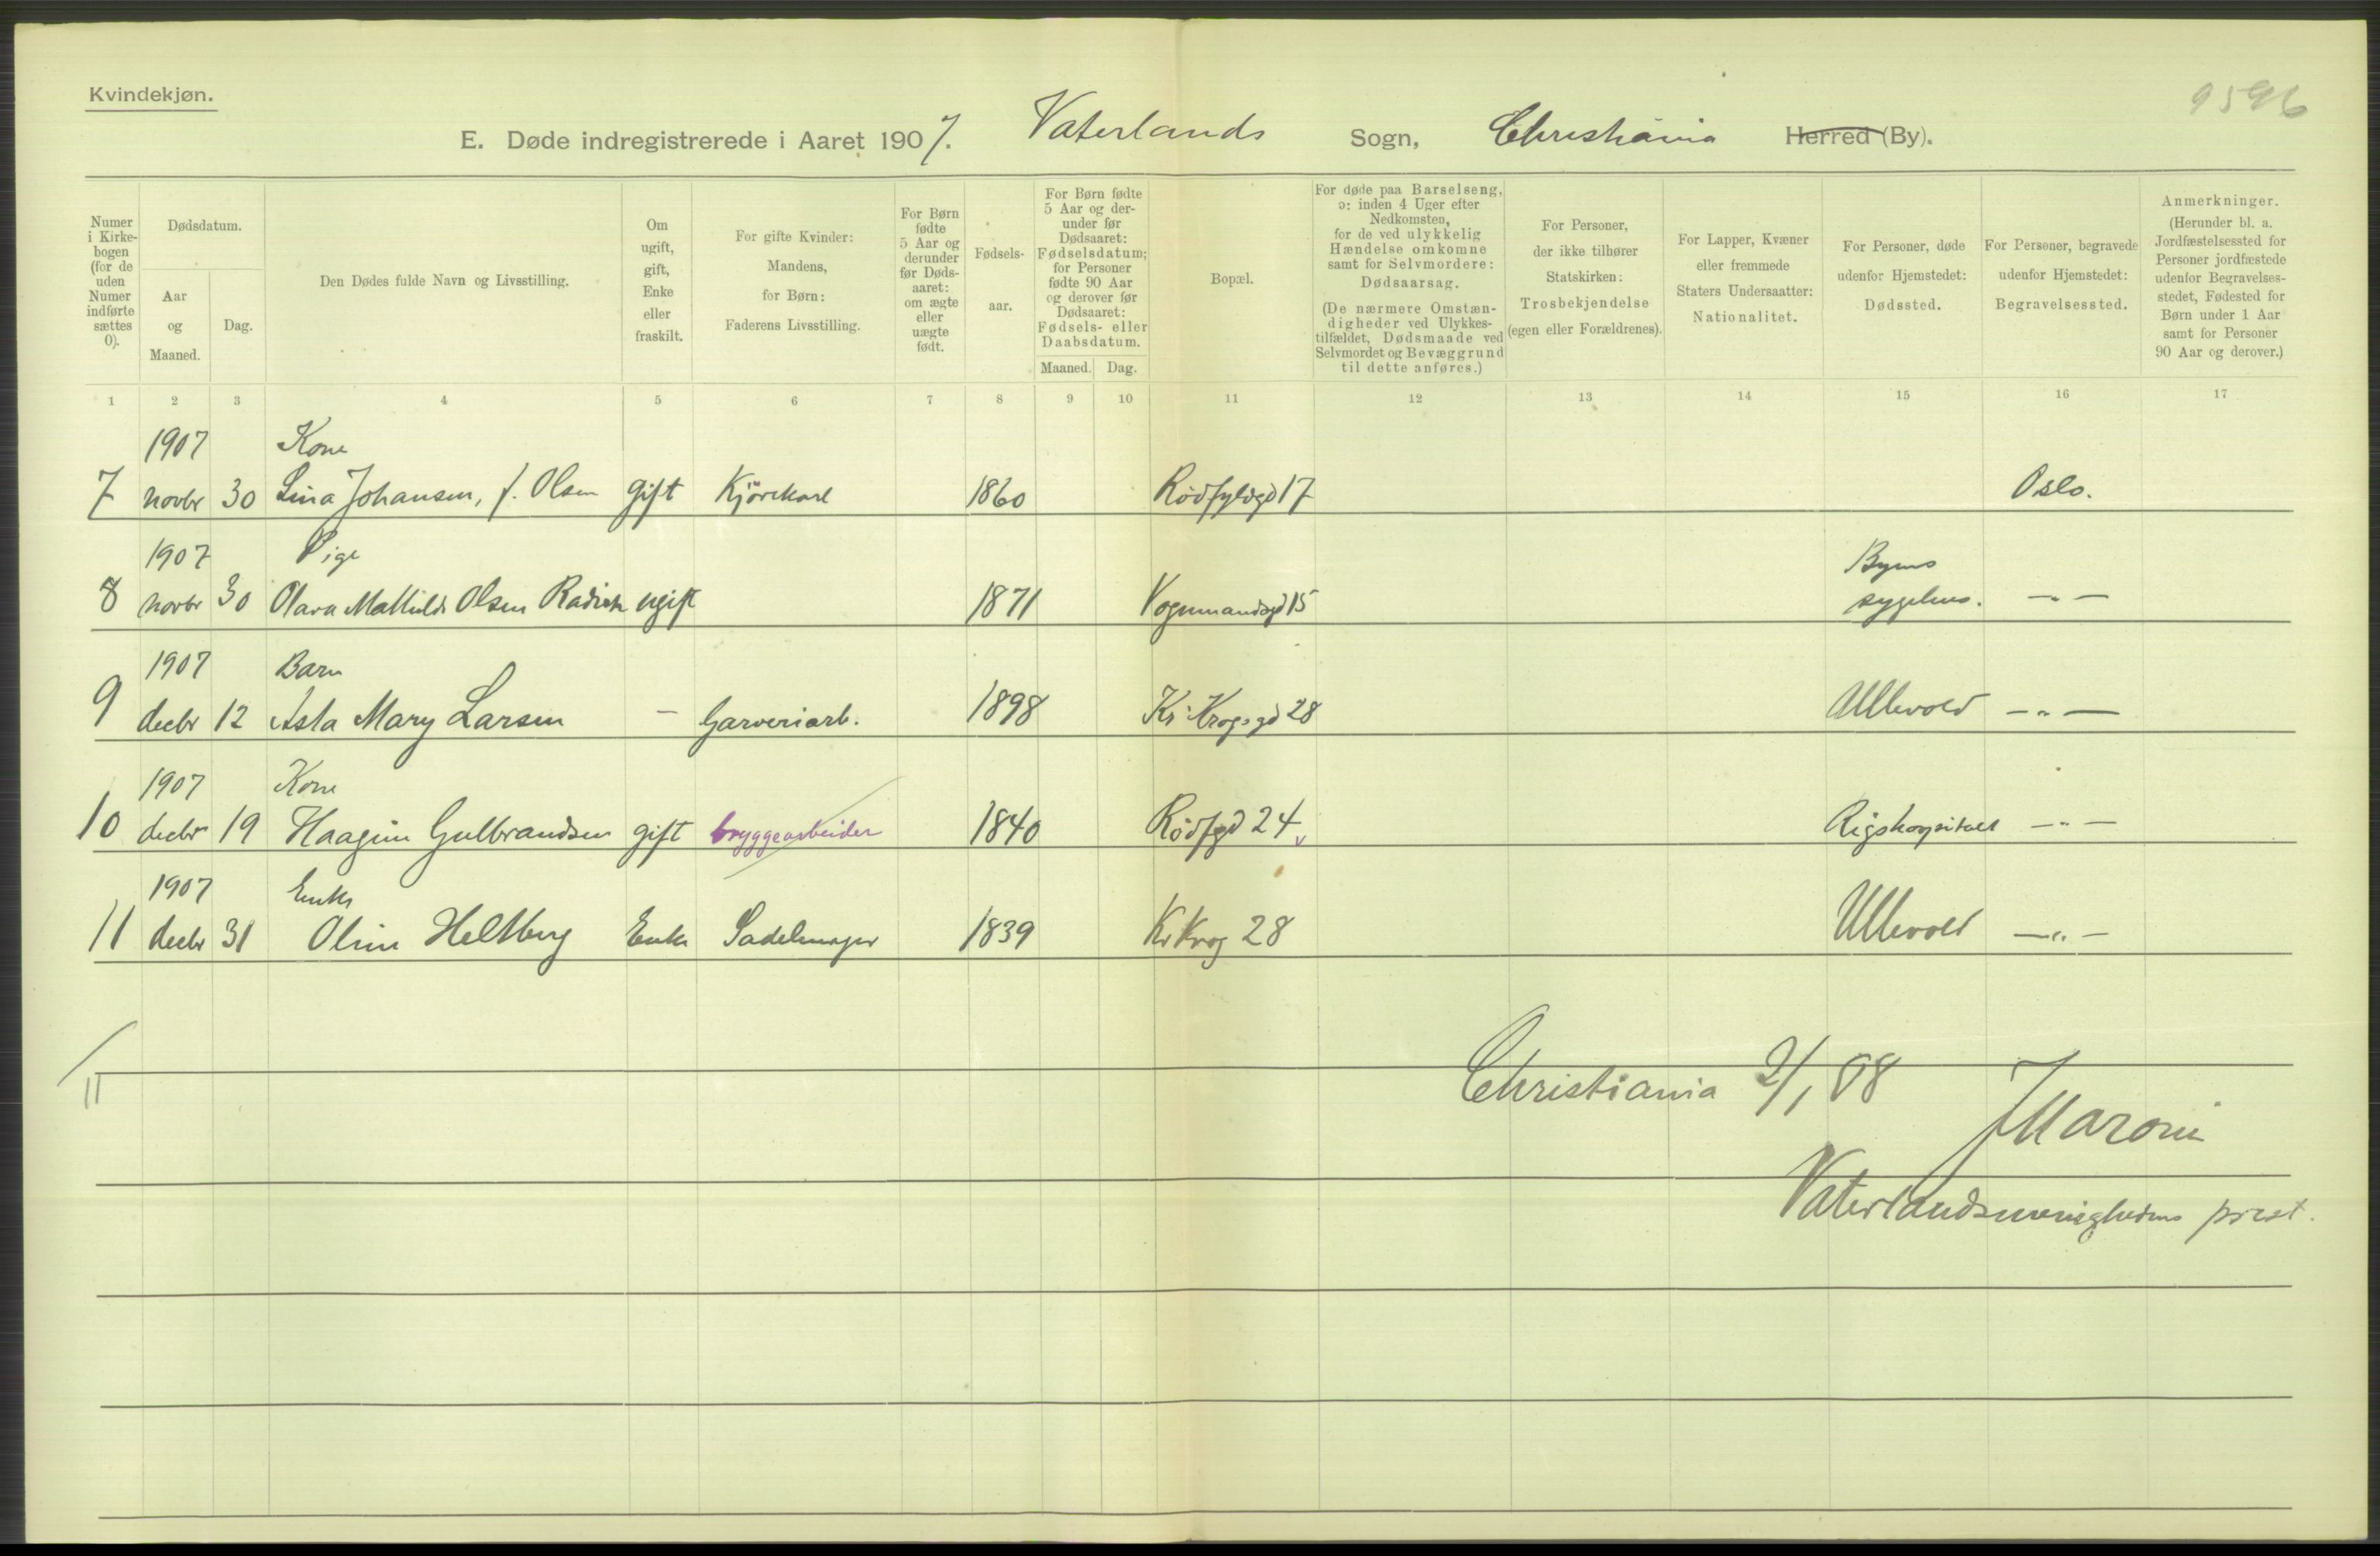 Kvindekjøn.
9596
E. Døde indregistrerede i Aaret 1907. Vaterlands Sogn, Christiania Herred (By).
Numer i Kirkebogen (for de uden Numer indførte sættes 0).
Dødsdatum.
Aar og Maaned.
Dag.
Den Dødes fulde Navn og Livsstilling.
Om ugift, gift, Enke eller fraskilt.
For gifte Kvinder: Mandens, for Børn: Faderens Livsstilling.
For Børn fødte 5 Aar og derunder før Dødsaaret: om ægte eller uægte født.
Fødselsaar.
For Børn fødte 5 Aar og derunder før Dødsaaret: Fødselsdatum; for Personer fødte 90 Aar og derover før Dødsaaret: Fødsels- eller Daabsdatum.
Maaned. Dag.
Bopæl.
For døde paa Barselseng, ɔ: inden 4 Uger efter Nedkomsten, for de ved ulykkelig Hændelse omkomne samt for Selvmordere: Dødsaarsag.
(De nærmere Omstændigheder ved Ulykkestilfældet, Dødsmaade ved Selvmordet og Bevæggrund til dette anføres.)
For Personer, der ikke tilhører Statskirken: Trosbekjendelse (egen eller Forældrenes).
For Lapper, Kvæner eller fremmede Staters Undersaatter: Nationalitet.
For Personer, døde udenfor Hjemstedet: Dødssted.
For Personer, begravede udenfor Hjemstedet: Begravelsessted.
Anmerkninger.
(Herunder bl. a. Jordfæstelsessted for Personer jordfæstede udenfor Begravelsesstedet, Fødested for Børn under 1 Aar samt for Personer 90 Aar og derover.)
1 2 3 4 5 6 7 8 9 10 11 12 13 14 15 16 17
1907 Kone
7 novbr 30 Lina Johansen, f. Olsen gift Kjørekarl 1860 Rødfyldgd 17 Oslo.
1907 Pige Byens
8 novbr 30 Olava Mathilde Olsen ugift 1871 Vognmandsgd 15 sygehus. —„—
1907 Barn
9 decbr 12 Asta Mary Larsen — Garveriarb. 1898 Kr Krogsgd 28 Ullevold —„—
1907 Kone
10 decbr 19 Haagine Gulbrandsen gift bryggearbeider 1840 Rødfgd 24 Rigshospitalet —„—
1907 Enke
11 decbr 31 Oline Heltberg Enke Sadelmager 1839 Kr Krog 28 Ullevold —„—
11
Christiania 2/1 08
J Maroni
Vaterlandsmenigheds prest.